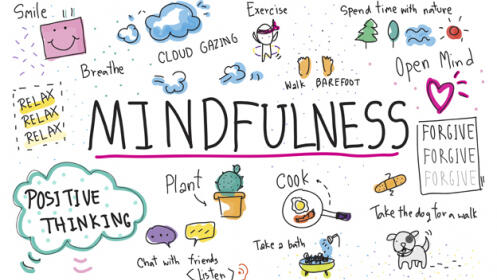 Smile
Breathe
CLOUD GAZING
Exercise
Spend time with nature
Walk BAREFOOT
Open Mind
RELAX
RELAX
RELAX
MINDFULNESS
FORGIVE
FORGIVE
FORGIVE
POSITIVE
THINKING
Plant
Cook
Chat with friends
<Listen>
Take a bath
Take the dog for a walk